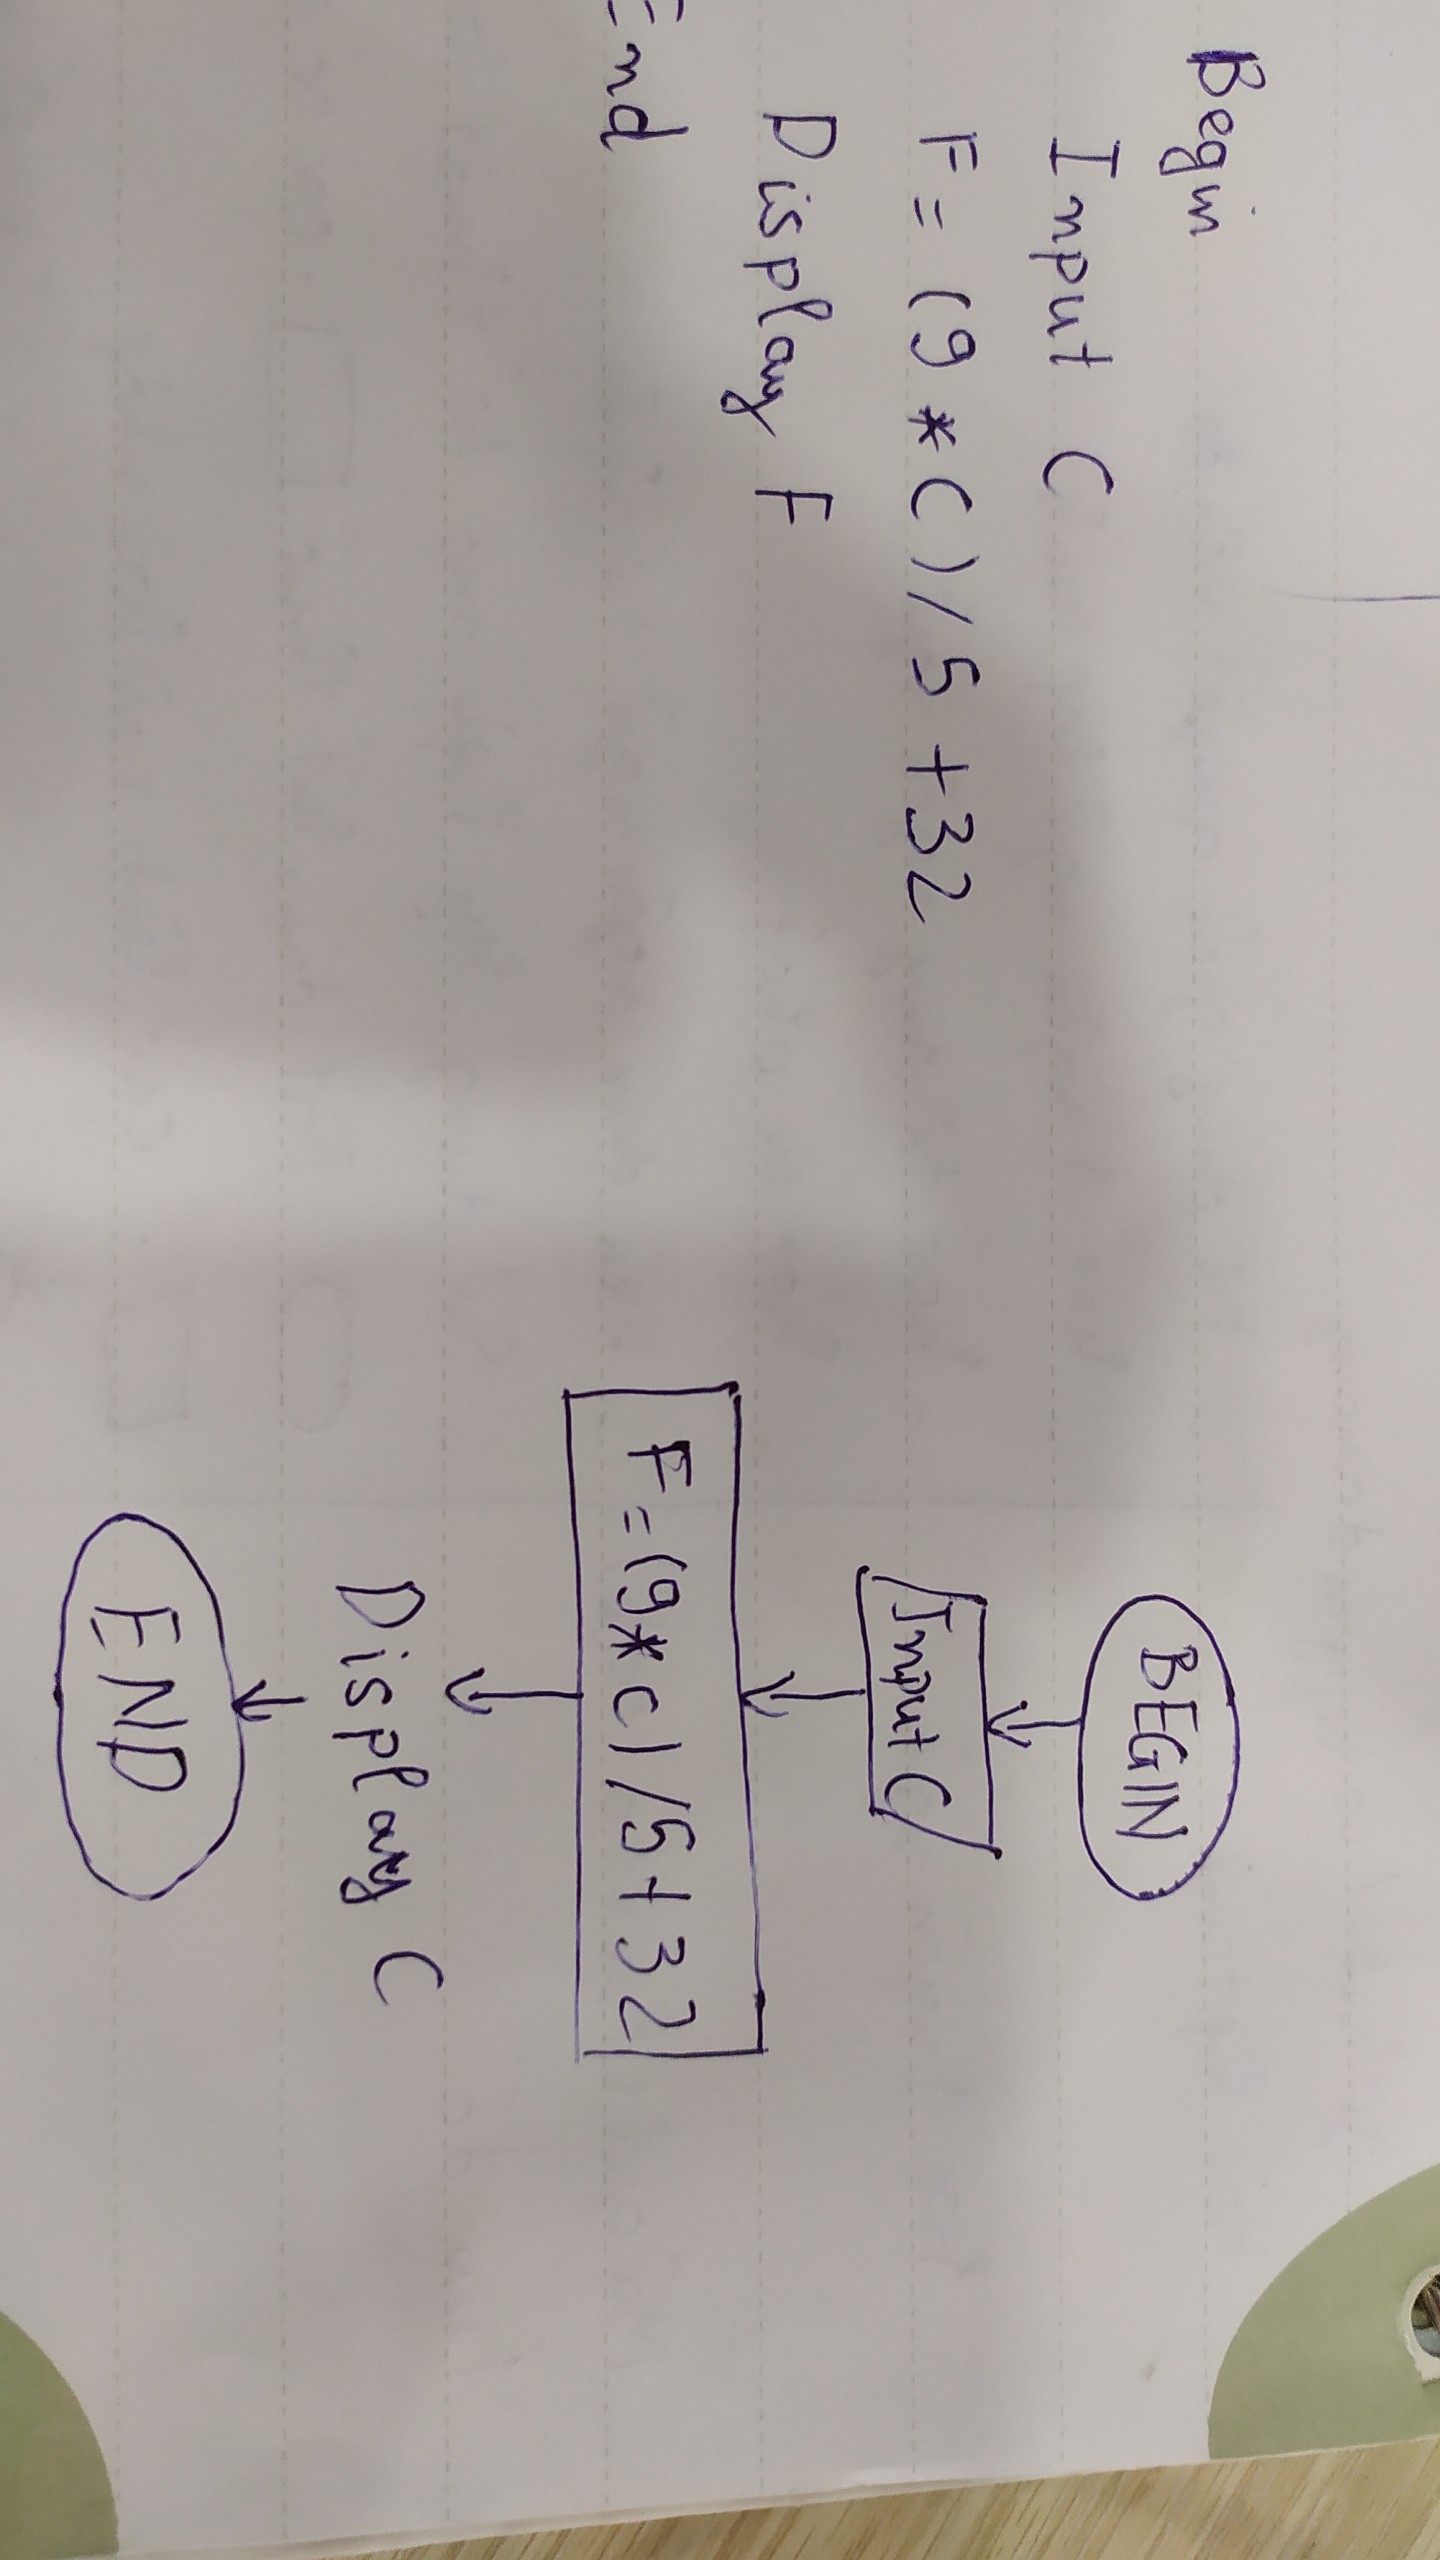 Begin
Input C
F = (9 * C) / 5 + 32
Display F
End
BEGIN
Input C
F = (9 * C) / 5 + 32
Display C
END